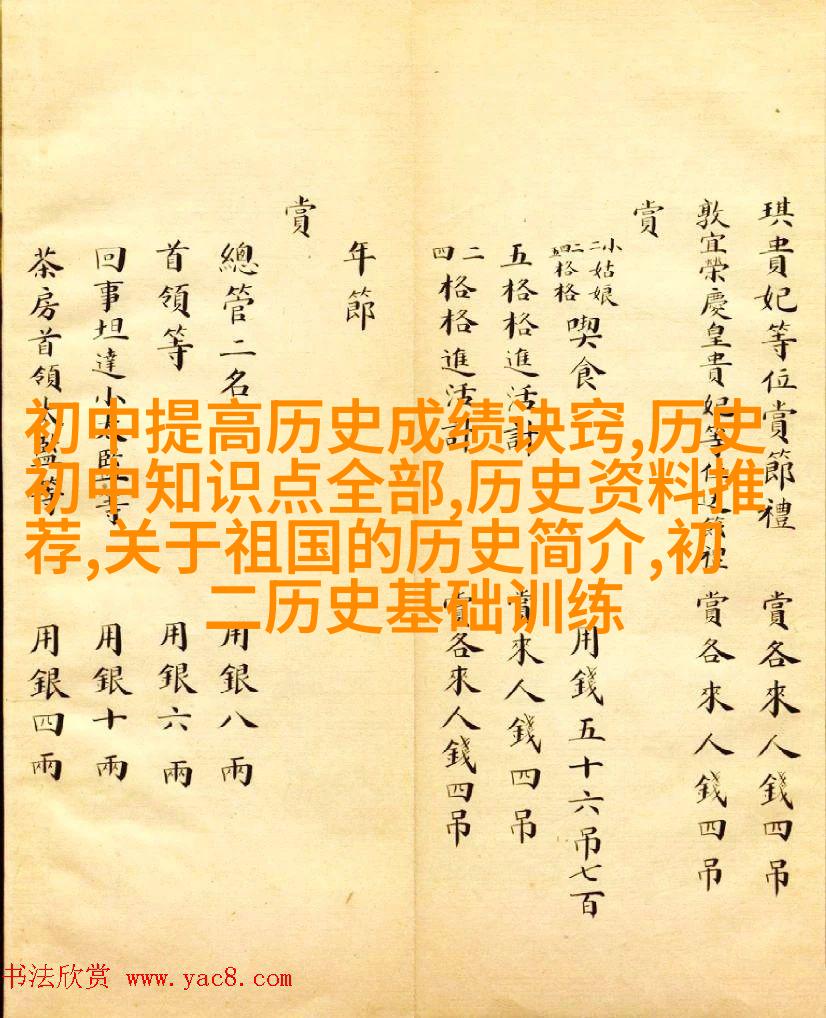 琪貴妃等位賞節禮 賞各來人錢四吊
敦宜榮慶皇貴妃等位送節禮 賞各來人錢四吊
賞
小姑娘 格格 喫食 用錢五十六吊七百
五格格進活計 賞來人錢四吊
二四格格進活計 賞各來人錢四吊
年節
賞
總管二名 用銀八兩
首領等 用銀六兩
回事坦達小太監等 用銀十兩
茶房首領太監等 用銀四兩
初中提高历史成绩诀窍,历史
初中知识点全部,历史资料推
荐,关于祖国的历史简介,初
二历史基础训练
书法欣赏 www.yac8.com